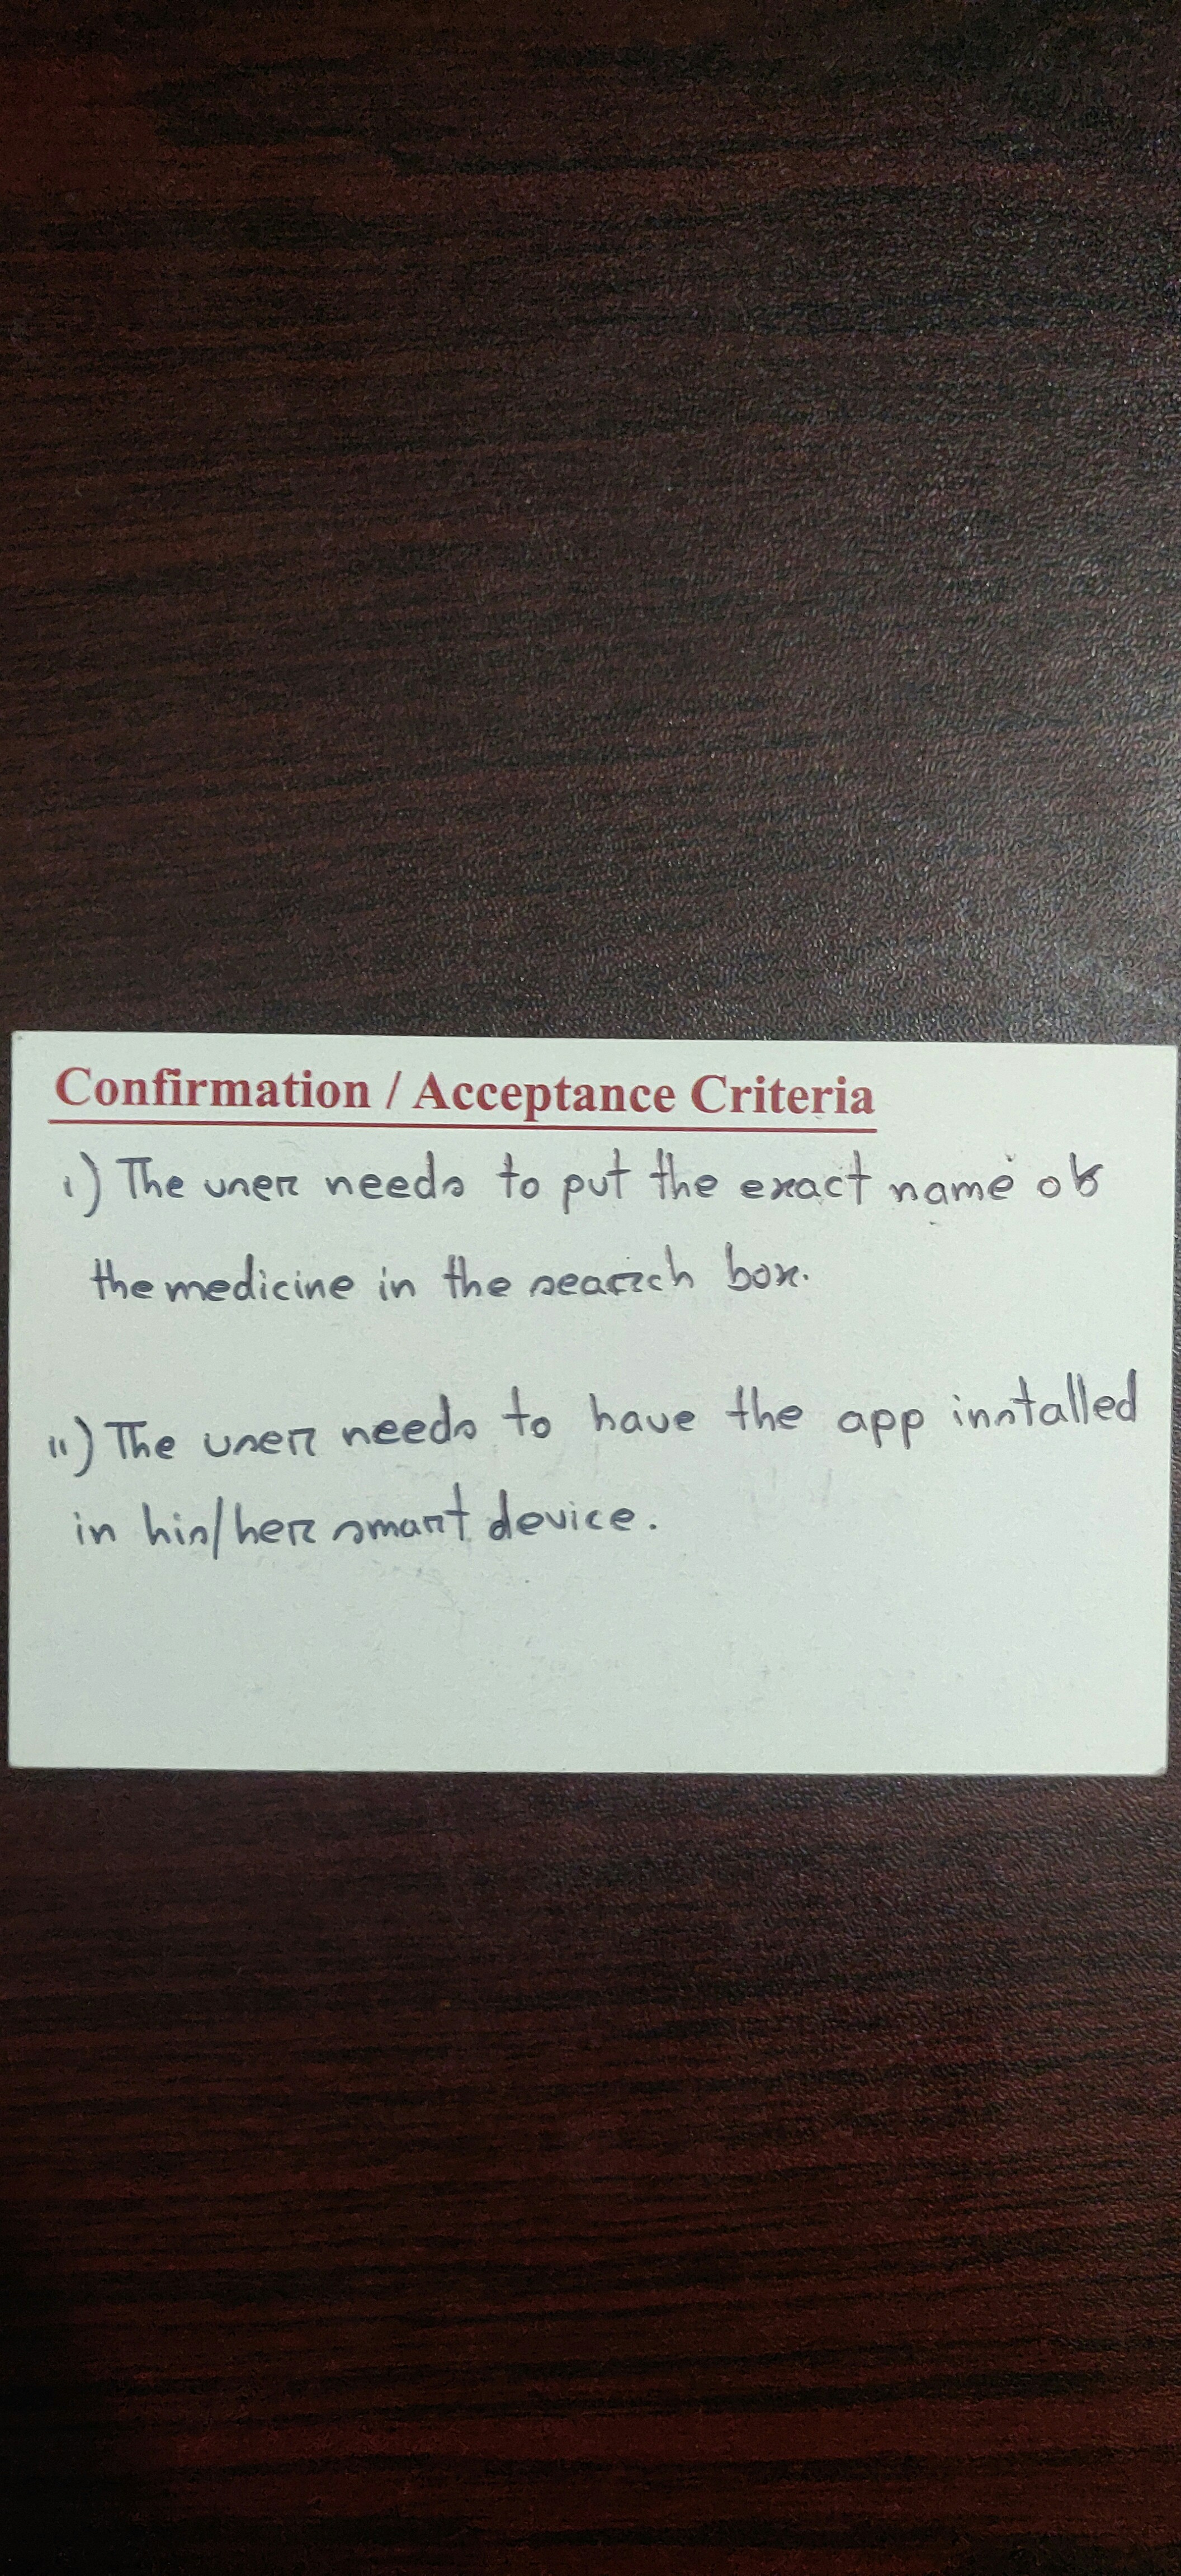 Confirmation / Acceptance Criteria
i) The user needs to put the exact name of
the medicine in the search box.
ii) The user needs to have the app installed
in his/her smart device.